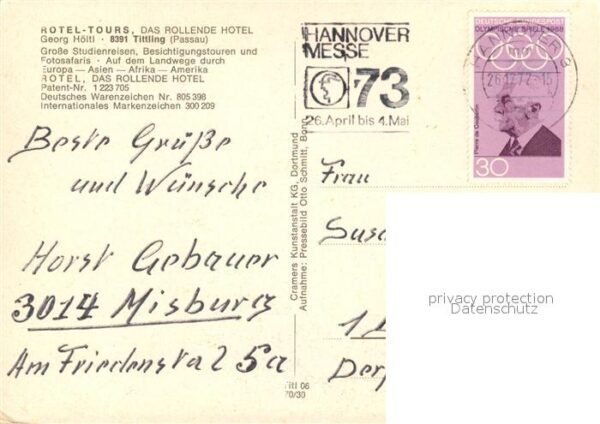 ROTEL-TOURS, DAS ROLLENDE HOTEL
Georg Höltl · 8391 Tittling (Passau)
Große Studienreisen, Besichtigungstouren und
Fotosafaris · Auf dem Landwege durch
Europa — Asien — Afrika — Amerika
ROTEL, DAS ROLLENDE HOTEL
Patent-Nr. 1 223 705
Deutsches Warenzeichen Nr. 805 398
Internationales Markenzeichen 300 209
Beste Grüße
und Wünsche
Horst Gebauer
3014 Misburg
Am Friedenstal 25a
Cramers Kunstanstalt KG, Dortmund
Aufnahme: Pressebild Otto Schmitt, Bonn
Titl 06
70/30
HANNOVER
MESSE
73
26. April bis 4. Mai
DEUTSCHE BUNDESPOST
OLYMPISCHE SPIELE 1968
Pierre de Coubertin
30
HANNOVER
Frau
privacy protection
Datenschutz